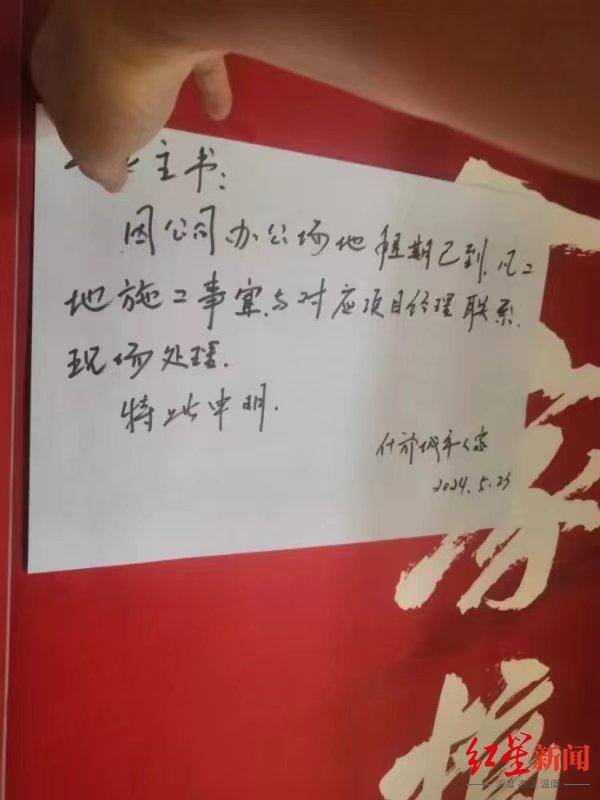 主书:
因公司办公场地租期已到,凡工
地施工事宜,与对应项目经理联系,
现场处理.
特此申明.
什邡城市人家
2024.5.23
家
红星新闻